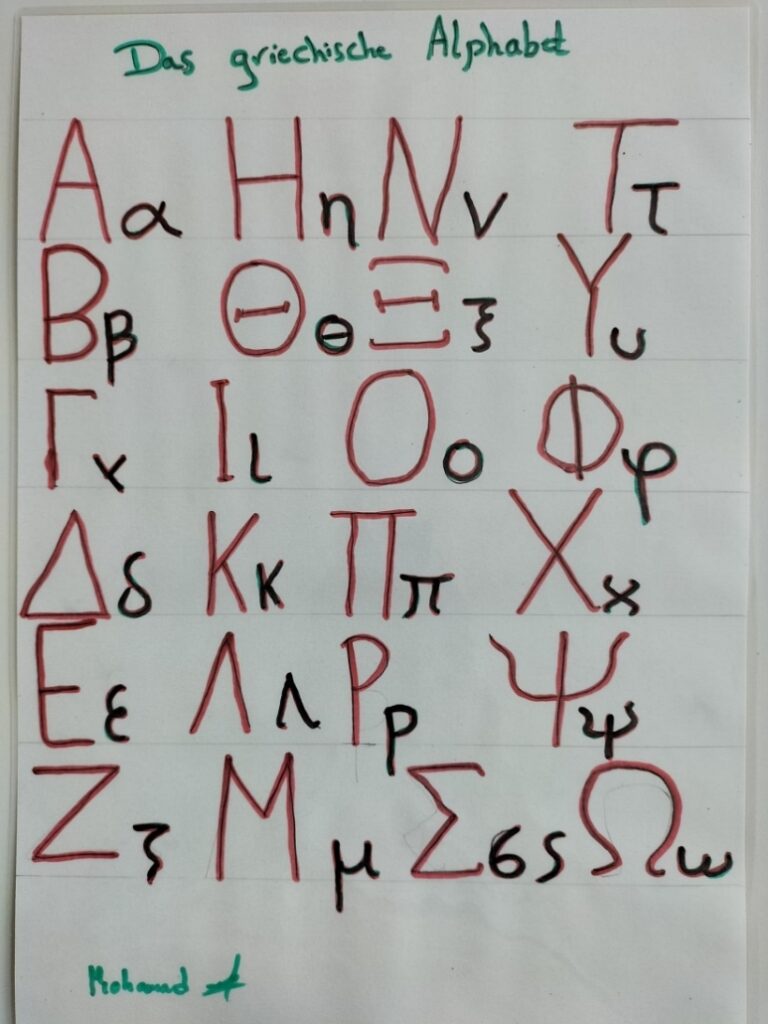 Das griechische Alphabet
Α α Η η Ν ν Τ τ
Β β Θ θ Ξ ξ Υ υ
Γ γ Ι ι Ο ο Φ φ
Δ δ Κ κ Π π Χ χ
Ε ε Λ λ Ρ ρ Ψ ψ
Ζ ζ Μ μ Σ σ ς Ω ω
Mohamad A